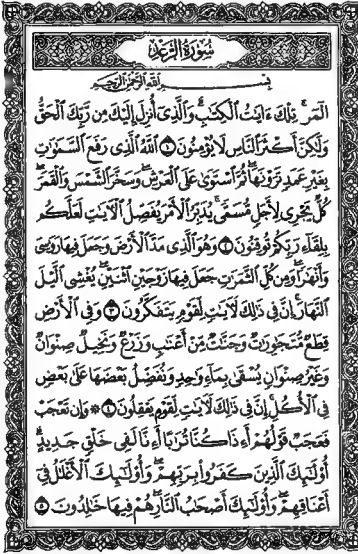 سُورَةُ الرَّعْدِ
بِسْمِ اللَّهِ الرَّحْمَٰنِ الرَّحِيمِ
الٓمٓر ۚ تِلْكَ ءَايَٰتُ ٱلْكِتَٰبِ ۗ وَٱلَّذِىٓ أُنزِلَ إِلَيْكَ مِن رَّبِّكَ ٱلْحَقُّ
وَلَٰكِنَّ أَكْثَرَ ٱلنَّاسِ لَا يُؤْمِنُونَ ١ ٱللَّهُ ٱلَّذِى رَفَعَ ٱلسَّمَٰوَٰتِ
بِغَيْرِ عَمَدٍ تَرَوْنَهَا ۖ ثُمَّ ٱسْتَوَىٰ عَلَى ٱلْعَرْشِ ۖ وَسَخَّرَ ٱلشَّمْسَ وَٱلْقَمَرَ ۖ
كُلٌّ يَجْرِى لِأَجَلٍ مُّسَمًّى ۚ يُدَبِّرُ ٱلْأَمْرَ يُفَصِّلُ ٱلْءَايَٰتِ لَعَلَّكُم
بِلِقَآءِ رَبِّكُمْ تُوقِنُونَ ٢ وَهُوَ ٱلَّذِى مَدَّ ٱلْأَرْضَ وَجَعَلَ فِيهَا رَوَٰسِىَ
وَأَنْهَٰرًا ۖ وَمِن كُلِّ ٱلثَّمَرَٰتِ جَعَلَ فِيهَا زَوْجَيْنِ ٱثْنَيْنِ ۖ يُغْشِى ٱلَّيْلَ
ٱلنَّهَارَ ۚ إِنَّ فِى ذَٰلِكَ لَءَايَٰتٍ لِّقَوْمٍ يَتَفَكَّرُونَ ٣ وَفِى ٱلْأَرْضِ
قِطَعٌ مُّتَجَٰوِرَٰتٌ وَجَنَّٰتٌ مِّنْ أَعْنَٰبٍ وَزَرْعٌ وَنَخِيلٌ صِنْوَانٌ
وَغَيْرُ صِنْوَانٍ يُسْقَىٰ بِمَآءٍ وَٰحِدٍ وَنُفَضِّلُ بَعْضَهَا عَلَىٰ بَعْضٍ
فِى ٱلْأُكُلِ ۚ إِنَّ فِى ذَٰلِكَ لَءَايَٰتٍ لِّقَوْمٍ يَعْقِلُونَ ٤ ۞ وَإِن تَعْجَبْ
فَعَجَبٌ قَوْلُهُمْ أَءِذَا كُنَّا تُرَٰبًا أَءِنَّا لَفِى خَلْقٍ جَدِيدٍ ۗ
أُو۟لَٰٓئِكَ ٱلَّذِينَ كَفَرُوا۟ بِرَبِّهِمْ ۖ وَأُو۟لَٰٓئِكَ ٱلْأَغْلَٰلُ فِىٓ
أَعْنَاقِهِمْ ۖ وَأُو۟لَٰٓئِكَ أَصْحَٰبُ ٱلنَّارِ ۖ هُمْ فِيهَا خَٰلِدُونَ ٥